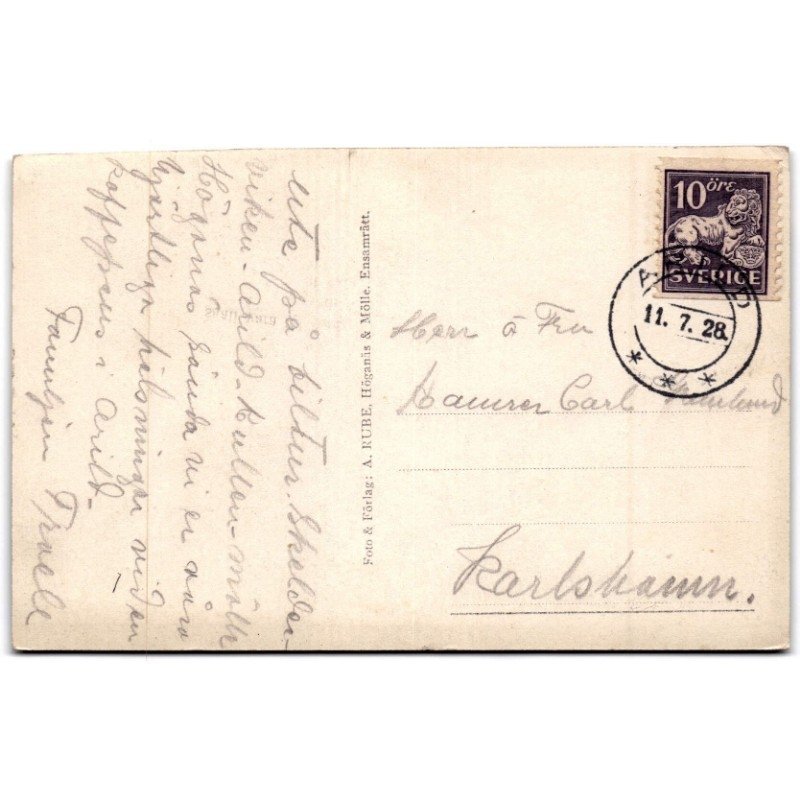 ute på biltur. Skelder-
viken - Arild - Kullen - Mölle
Höganäs sända vi er våra
hjärtliga hälsningar vid en
kaffepaus i Arild -
Familjen
Foto & Förlag: A. RUBE, Höganäs & Mölle. Ensamrätt.
10 öre
SVERIGE
11. 7. 28.
* * *
Herr å Fru
Carl
Karlshamn.